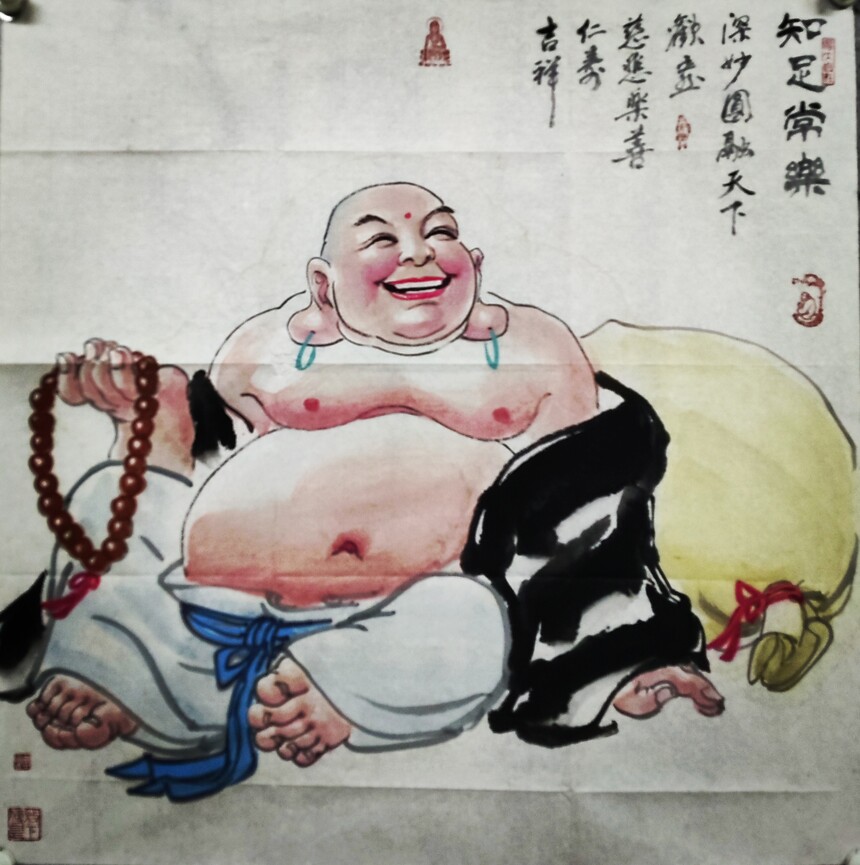 知足常樂
深妙圓融天下
歡喜
慈悲樂善
仁壽
吉祥